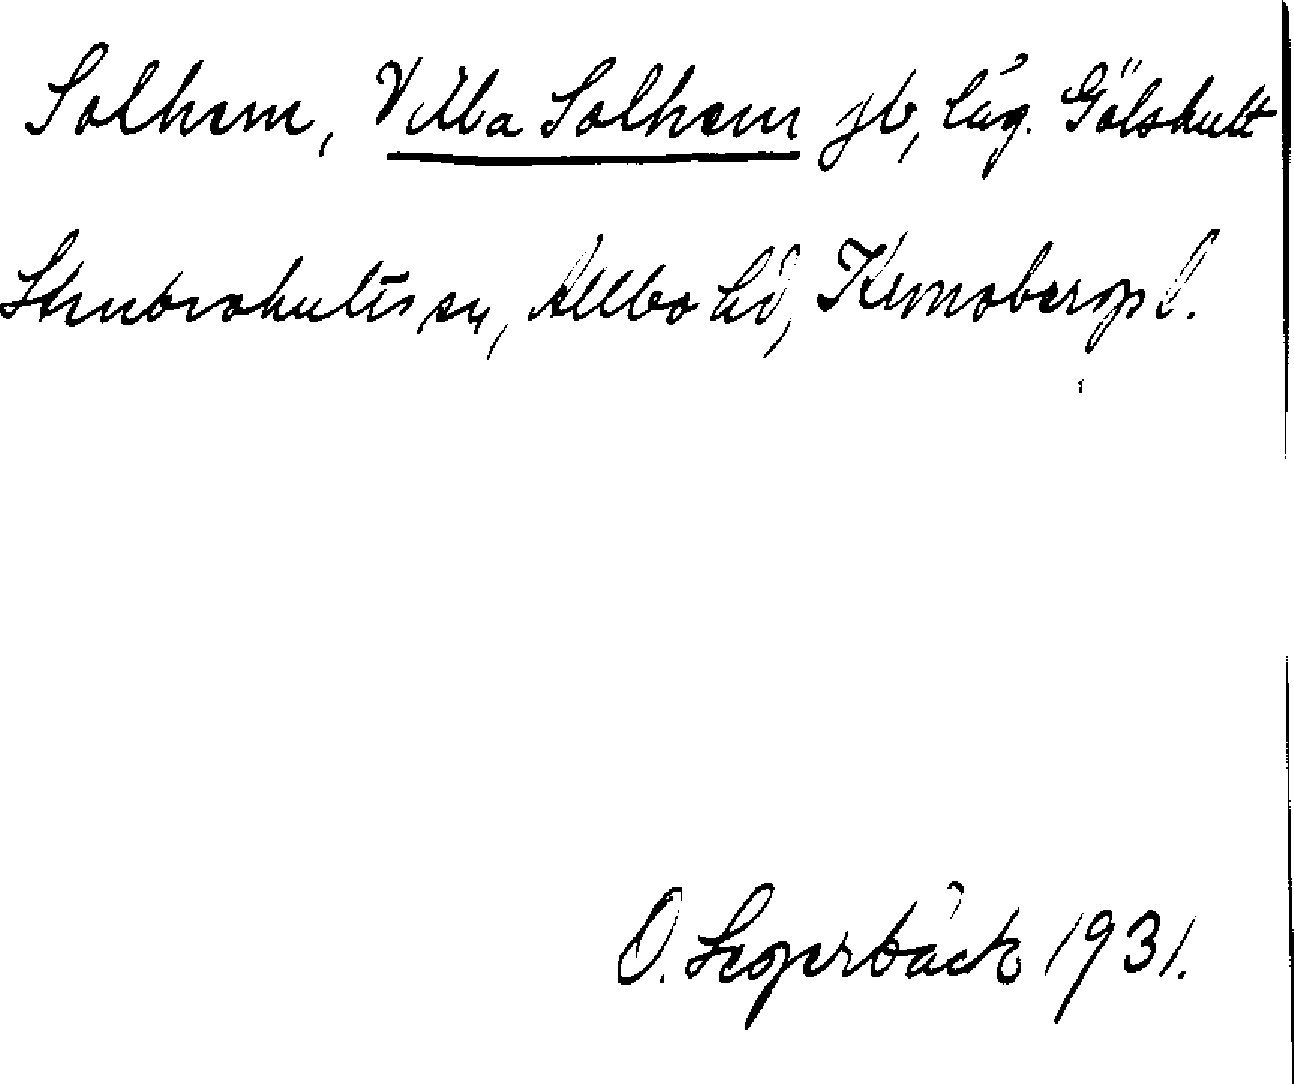 Solhem, Villa Solhem jb, läg. Gölshult
Stenbrohults sn, Allbo hd, Kronobergs l.
O. Segerbäck 1931.